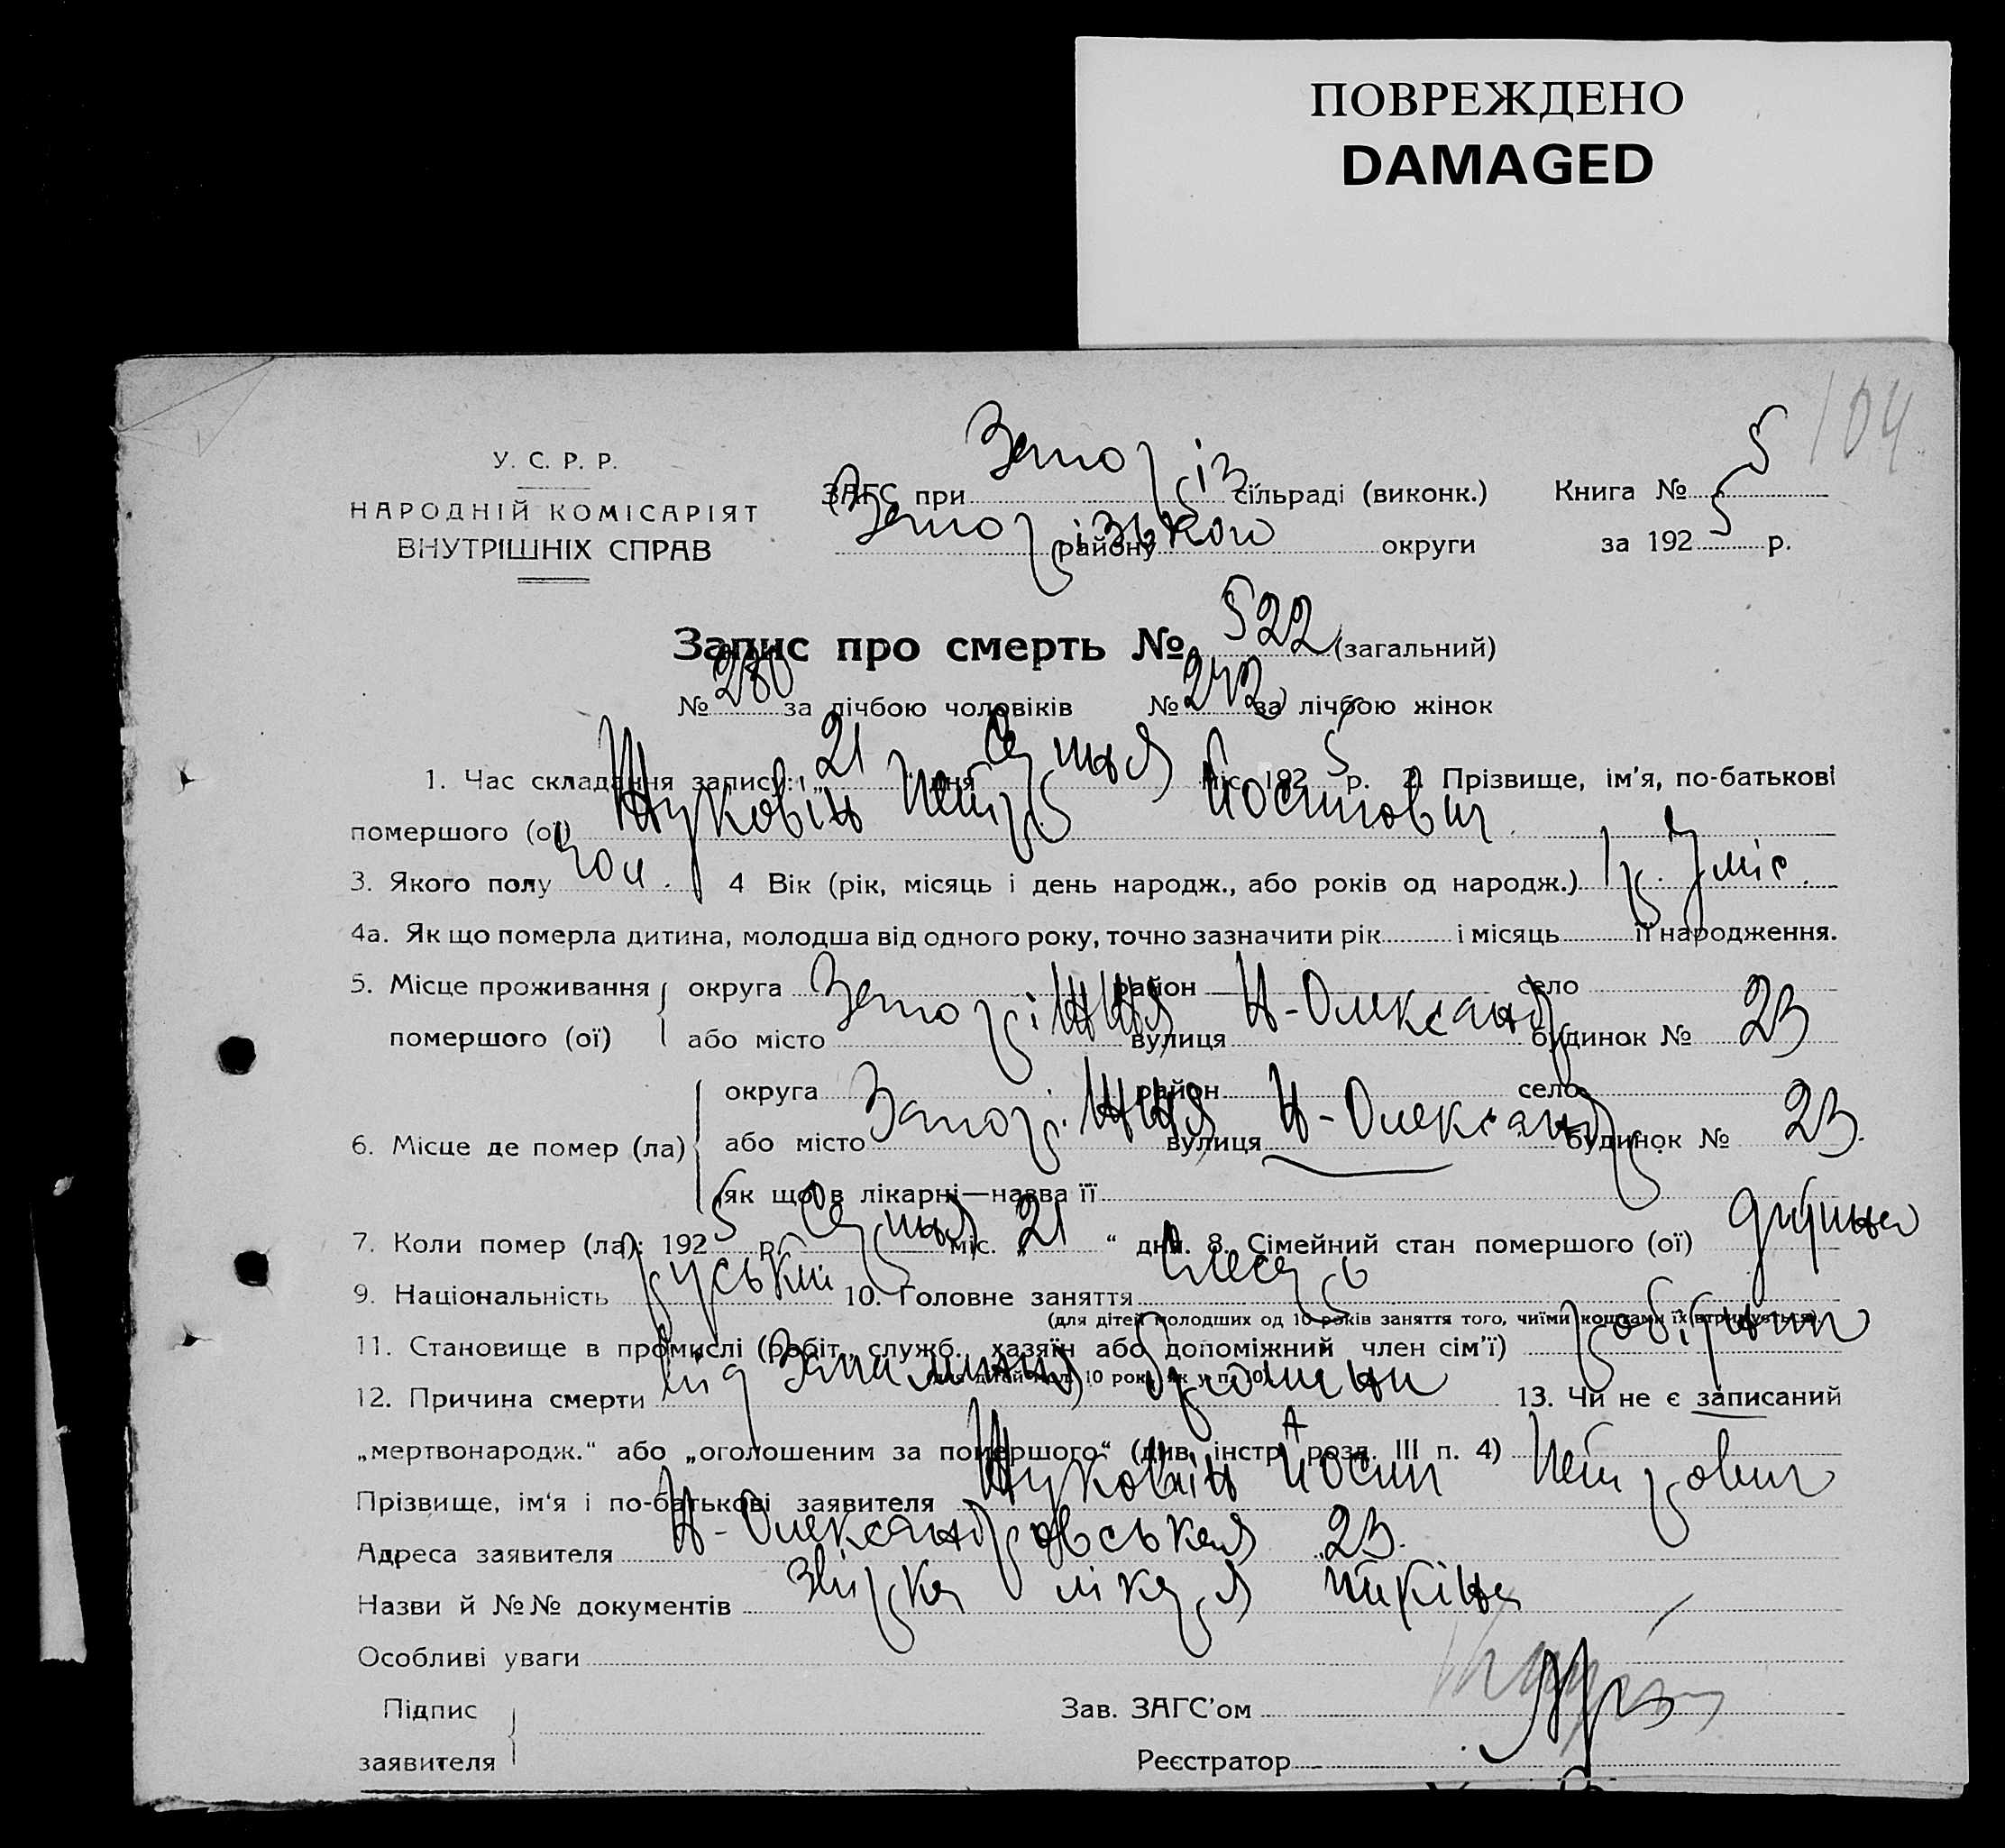 ПОВРЕЖДЕНО
DAMAGED
104
У. С. Р. Р.
НАРОДНІЙ КОМІСАРІЯТ
ВНУТРІШНІХ СПРАВ
ЗАГС при Запоріз сільраді (виконк.)
Запорізького району округи
Книга № 5
за 1925 р.
Запис про смерть № 522 (загальний)
№ 280 за лічбою чоловіків № 242 за лічбою жінок
1. Час складання запису: „21" дня Серпня міс. 1925 р. 2. Прізвище, ім'я, по-батькові
помершого (ої) Жуковін Петро Йосипович
3. Якого полу чол. 4 Вік (рік, місяць і день народж., або років од народж.) 1 р. 7 міс.
4а. Як що померла дитина, молодша від одного року, точно зазначити рік і місяць її народження.
5. Місце проживання помершого (ої) округа район село
або місто Запоріжжя вулиця Н-Олександр будинок № 23
6. Місце де помер (ла) округа район село
або місто Запоріжжя вулиця Н-Олександр будинок № 23.
як що в лікарні—назва її
7. Коли помер (ла): 1925 р. Серпня міс. „21" дня. 8. Сімейний стан помершого (ої) дитина
9. Національність руський 10. Головне заняття Слесарь
(для дітей молодших од 10 років заняття того, чиїми коштами їх втримується).
11. Становище в промислі (робіт., служб., хазяїн або допоміжний член сім'ї) робітник
(для дітей мол. 10 рок. як у п. 10)
12. Причина смерти від 13. Чи не є записаний
„мертвонародж." або „оголошеним за помершого" (див. інстр. розд. III п. 4)
Прізвище, ім'я і по-батькові заявителя Жуковін Йосип Петрович
Адреса заявителя Н-Олександровська 23.
Назви й №№ документів лікаря
Особливі уваги
Підпис заявителя
Зав. ЗАГС'ом
Реєстратор